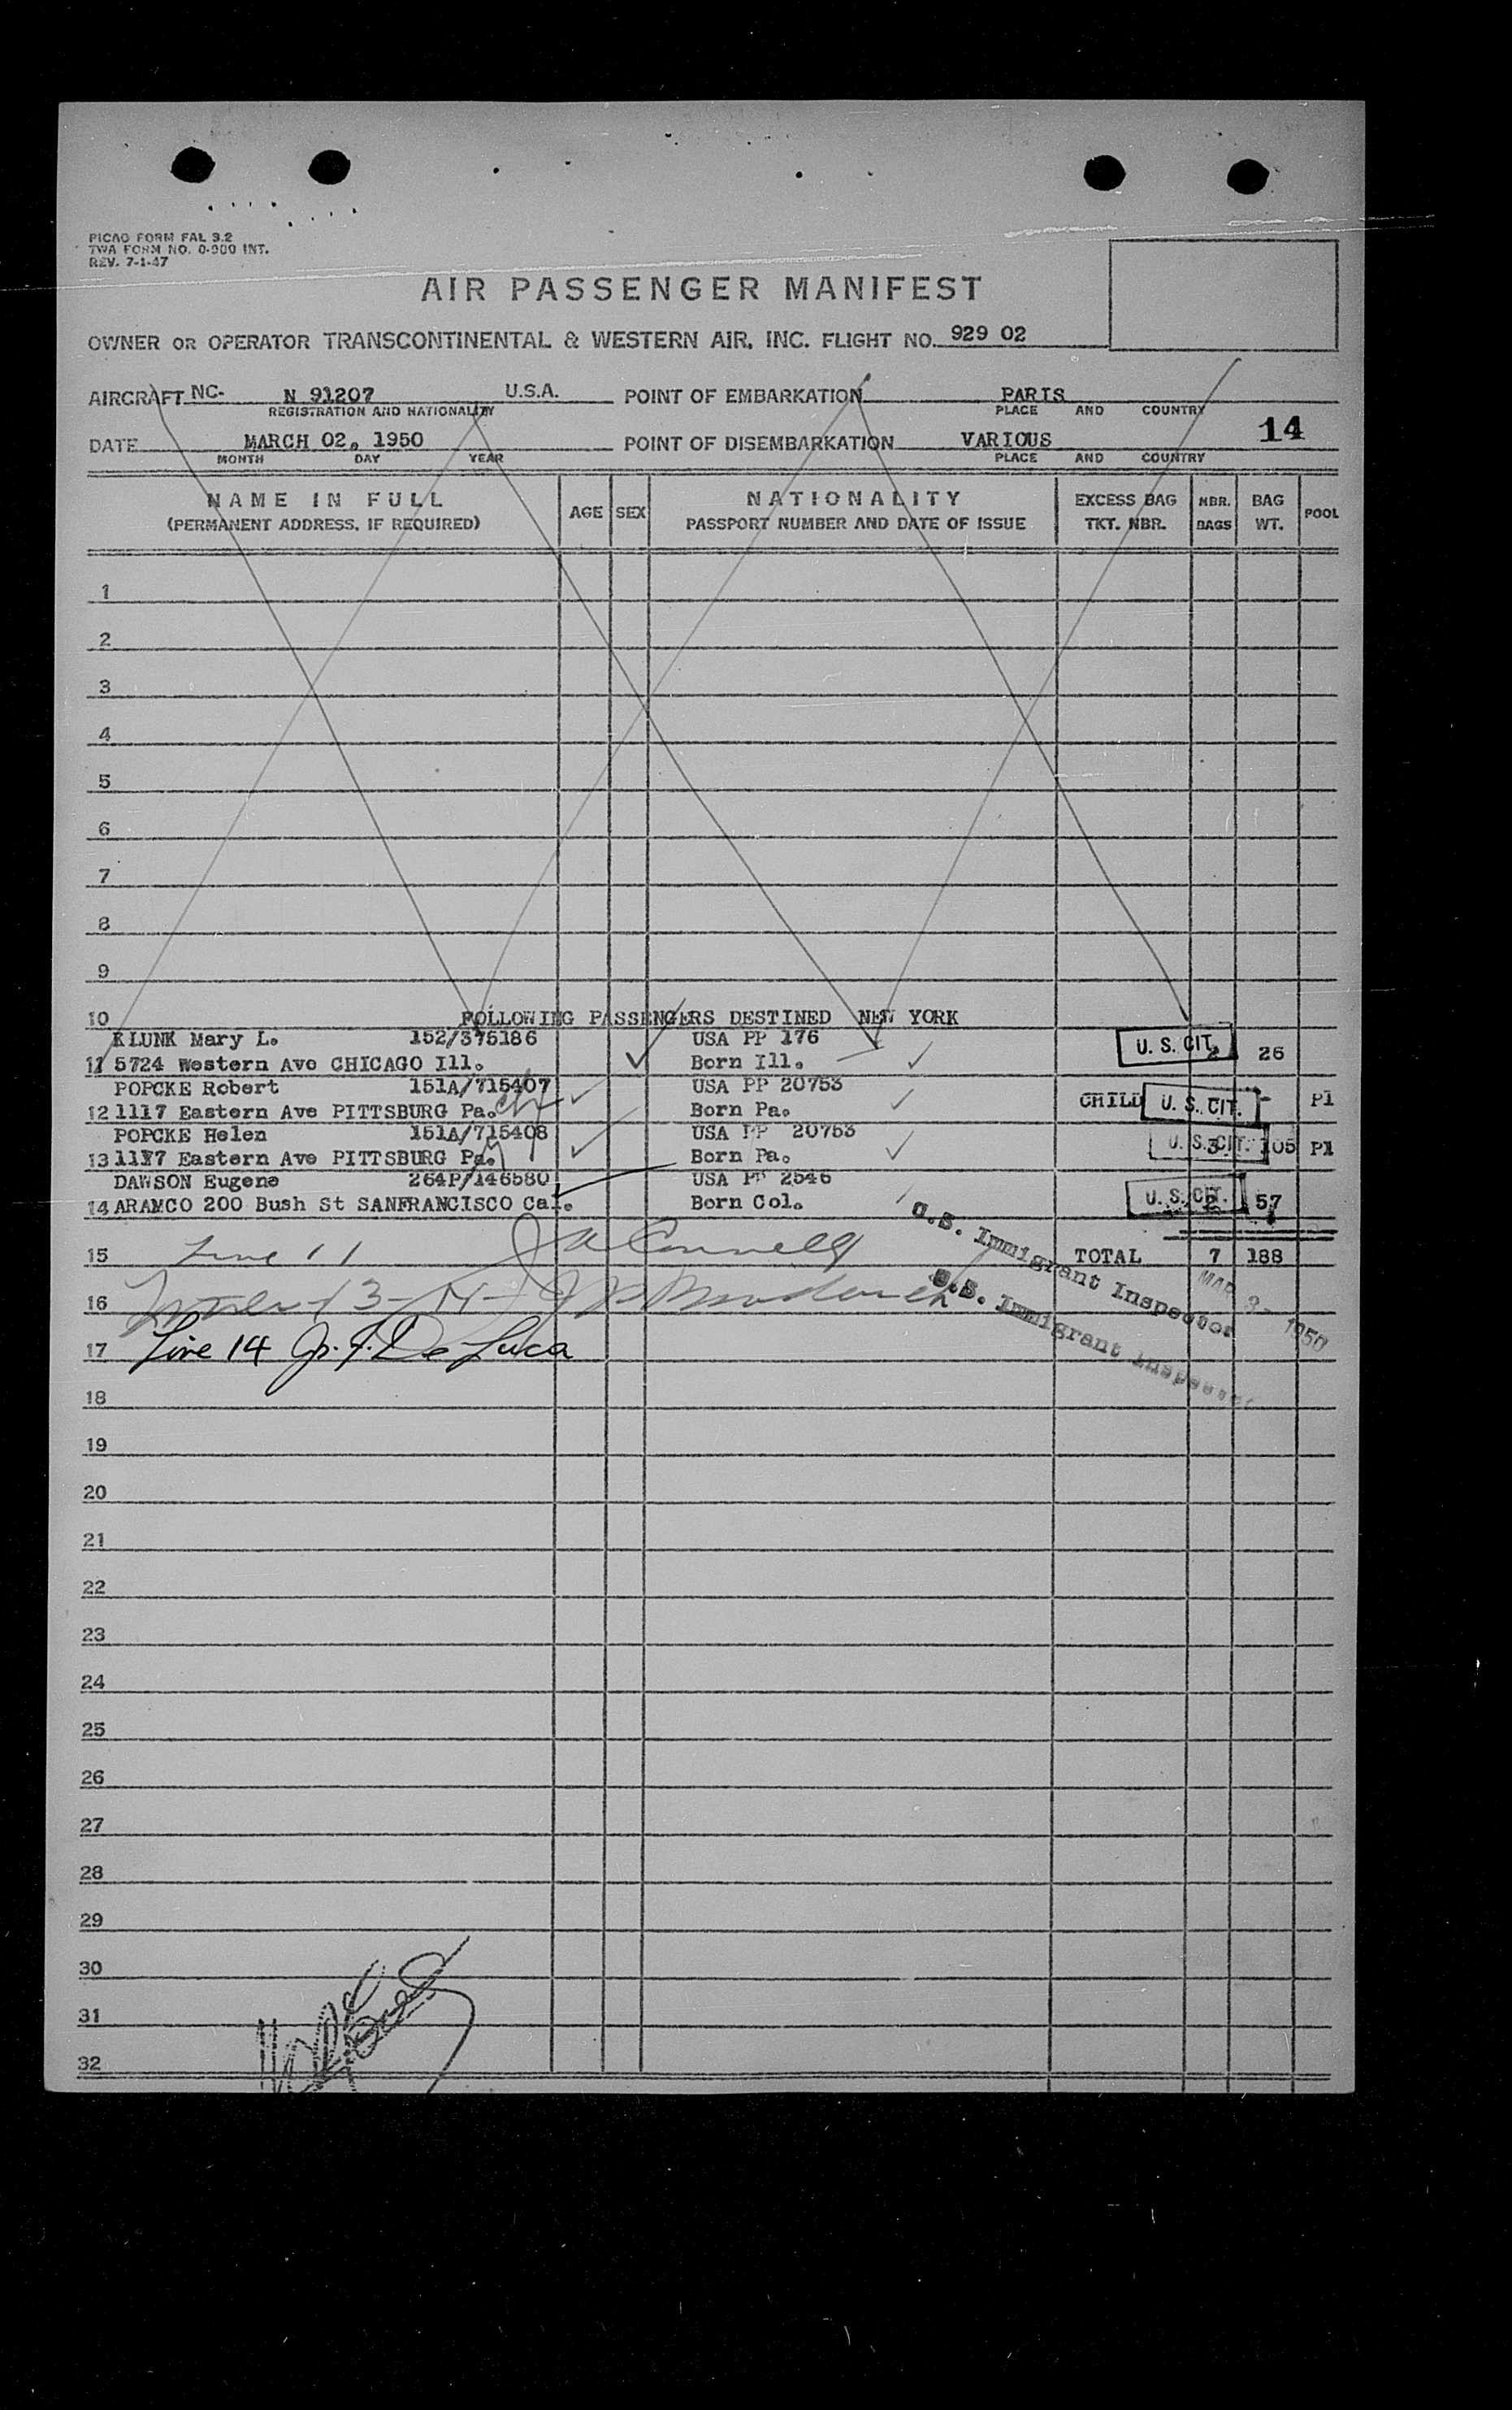 PICAO FORM FAL 3.2
TWA FORM NO. 0-900 INT.
REV. 7-1-47
AIR PASSENGER MANIFEST
OWNER OR OPERATOR TRANSCONTINENTAL & WESTERN AIR, INC. FLIGHT NO. 929 02
AIRCRAFT NC- N 91207 U.S.A. POINT OF EMBARKATION PARIS
REGISTRATION AND NATIONALITY PLACE AND COUNTRY
14
DATE MARCH 02, 1950 POINT OF DISEMBARKATION VARIOUS
MONTH DAY YEAR PLACE AND COUNTRY
NAME IN FULL AGE SEX NATIONALITY EXCESS BAG NBR. BAG POOL
(PERMANENT ADDRESS, IF REQUIRED) PASSPORT NUMBER AND DATE OF ISSUE TKT. NBR. BAGS WT.
1
2
3
4
5
6
7
8
9
10 FOLLOWING PASSENGERS DESTINED NEW YORK
KLUNK Mary L. 152/375186 USA PP 176
11 5724 Western Ave CHICAGO Ill. Born Ill. U. S. CIT. 2 26
POPCKE Robert 151A/715407 USA PP 20753
12 1117 Eastern Ave PITTSBURG Pa. Born Pa. CHILD U. S. CIT. - P1
POPCKE Helen 151A/715408 USA PP 20753
13 1117 Eastern Ave PITTSBURG Pa. Born Pa. U. S. CIT. 3 105 P1
DAWSON Eugene 264P/146580 USA PP 2546
14 ARAMCO 200 Bush St SANFRANCISCO Cal. Born Col. U. S. CIT. 2 57
15 Line 11 TOTAL 7 188
U.S. Immigrant Inspector
MAR 3- 1950
16
U.S. Immigrant Inspector
17 Line 14 Jr. J. De Luca
18
19
20
21
22
23
24
25
26
27
28
29
30
31
32